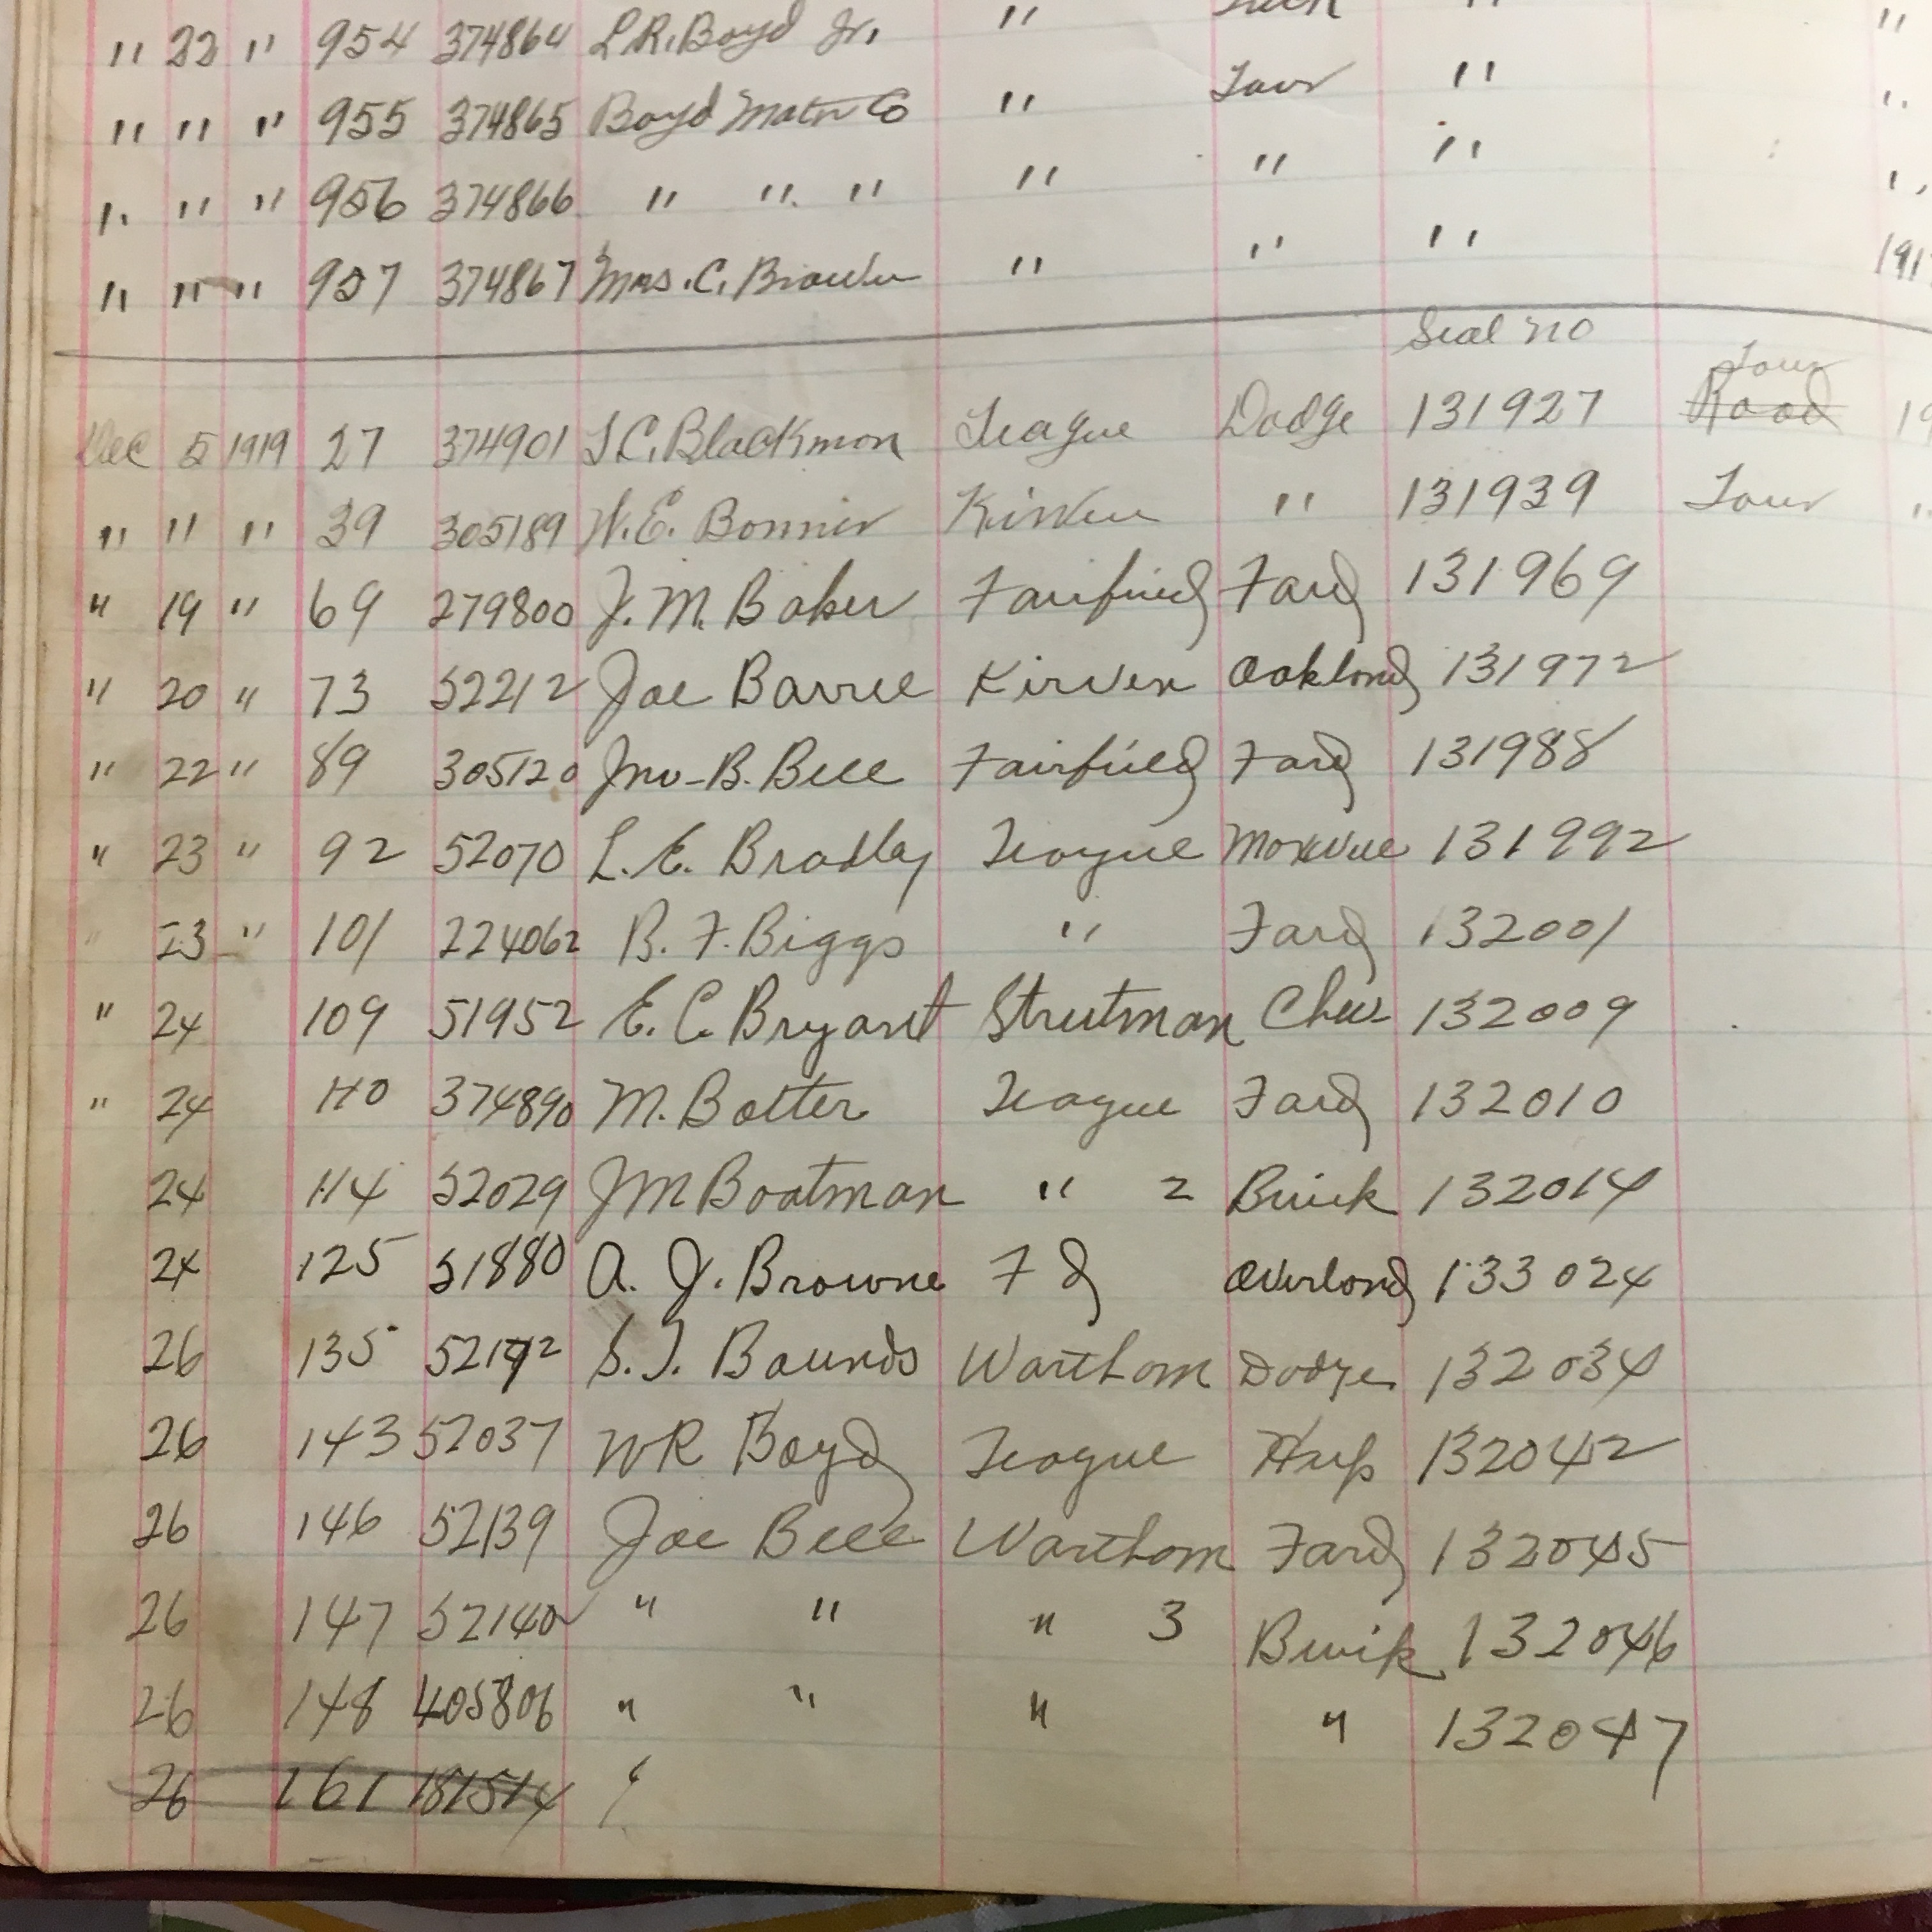 " 22 " 954 374864 L.R. Boyd Jr. " "
" " " 955 374865 Boyd Motor Co " Tour "
" " " 956 374866 " " " " " "
" " " 957 374867 Mrs. C. Browder " " " 191
Seal no
Dec 5 1919 27 374901 T.C. Blackmon Teague Dodge 131927 Tour Road 19
" " " 39 305189 W.E. Bonner Kirven " 131939 Tour "
" 19 " 69 279800 J.M. Baker Fairfield Ford 131969
" 20 " 73 52212 Joe Barree Kirven Oakland 131972
" 22 " 89 305120 Jno-B. Bell Fairfield Ford 131988
" 23 " 92 52070 L.E. Bradley Teague Maxwell 131992
" 23 " 101 224062 B.F. Biggs " Ford 132001
" 24 109 51952 E.C. Bryant Streetman Chev 132009
" 24 110 374890 M. Botter Teague Ford 132010
24 114 52029 JM Boatman " 2 Buick 132014
24 125 51880 A. J. Browne Fd Overland 133024
26 135 S.J. Bounds Wortham Dodge 132034
26 143 52037 WR Boyd Teague Hup 132042
26 146 52139 Joe Bell Wortham Ford 132045
26 147 52140 " " " 3 Buick 132046
26 148 405806 " " " " 132047
26 161 181514